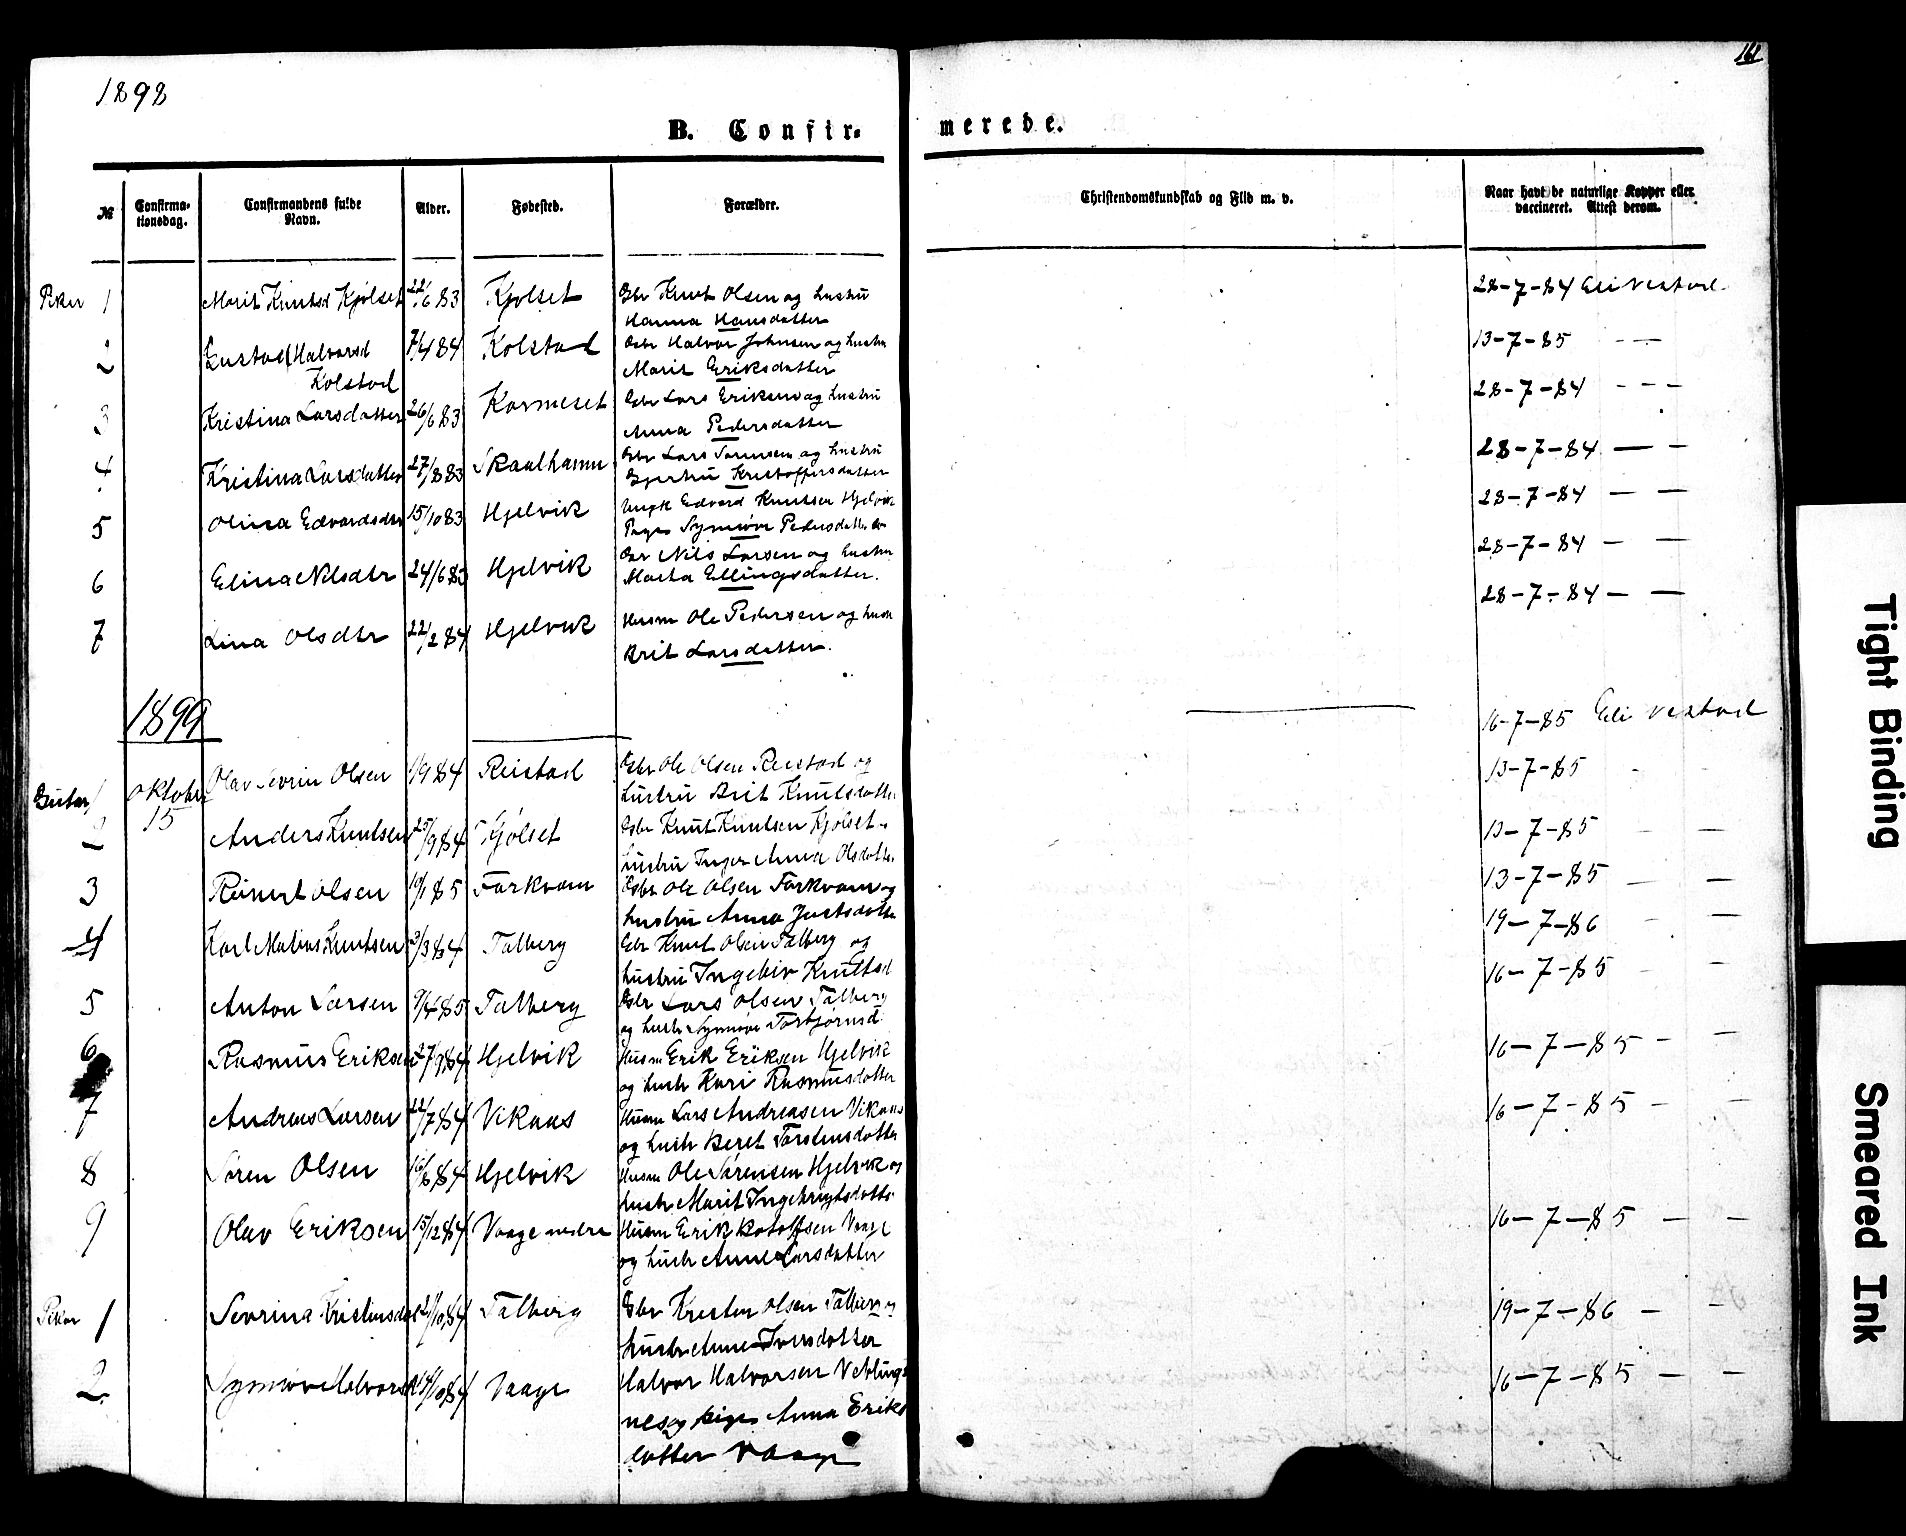 1898
161
B. Confir-
merede.
№
Confirma-
tionsdag.
Confirmandens fulde
Navn.
Alder.
Fødested.
Forældre.
Christendomskundskab og Flid m. v.
Naar havt de naturlige Kopper eller
vaccineret. Attest derom.
Piker 1 Marit Knutsd Kjølset 22/6 83 Kjølset Gbr Knut Olsen og hustru
Hanna Hansdatter
28-7-84 Eli Vestad
2 Gustad Halvorsd 7/4 84 Kolstad Gbr Halvor Johnsen og hustru
Kolstad Marit Eriksdatter
13-7-85 — —
3 Kristina Larsdatter 26/6 83 Kormeset Gbr Lars Eriksen og hustru
Anna Pedersdatter
28-7-84 - - -
4 Kristina Larsdatter 27/8 83 Skaalhamn Gbr Lars og hustru
Gjertru Kristoffersdatter
28-7-84 — —
5 Olina Edvardsdtr 15/10 83 Hjelvik Ungk Edvard Knutsen Hjelvik
Pige Synnøve Pedersdatter
28-7-84 — —
6 Elina Nilsdtr 24/6 83 Hjelvik Gbr Nils Larsen og hustru
Marta Ellingsdatter.
28-7-84 — —
7 Lina Olsdtr 22/2 84 Hjelvik Husm Ole Pedersen og hustr
Brit Larsdatter.
28-7-84 — —
1899
Gutar 1 Oktober Olav Sevrin Olsen 1/9 84 Reistad Gbr Ole Olsen Reistad og
15 hustru Brit Knutsdatter
16-7-85 Eli Vestad
2 Anders Knutsen 25/9 84 Kjølset Gbr Knut Knutsen Kjølset
hustru Inger Anna Olsdatter
13-7-85
3 Reinert Olsen 19/1 85 Torkvam Gbr Ole Olsen Torkvam og
hustru Anna Jostsdatter
13-7-85 —
4 Karl Matias Knutsen 3/3 84 Talberg Gbr Knut Olsen Talberg og
hustru Ingebir Knutsd
13-7-85 — —
5 Anton Larsen 9/4 85 Talberg Gbr Lars Olsen Talberg
og hustr Synnøve Torbjørnsd
19-7-86 — —
6 Rasmus Eriksen 27/9 84 Hjelvik Husm Erik Eriksen Hjelvik
og hustr Kari Rasmusdatter
16-7-85 — —
7 Andreas Larsen 22/7 84 Vikaas Husm Lars Andreasen Vikaas
og hustr Beret Torstensdatter
16-7-85 — —
8 Søren Olsen 16/6 84 Hjelvik Husm Ole Sørensen Hjelvik og
hustr Marit Ingebrigtsdatter
16-7-85 — —
9 Olav Eriksen 15/12 84 Vaage nedre Husm Erik Botolfsen Vaage
og hustr Anne Larsdatter
16-7-85 — —
Piker 1 Sevrina Kristensdat 21/10 84 Talberg Gbr Kristen Olsen Talberg og
hustr Anne Iversdatter
19-7-86 — —
2 Synnøve Halvorsd 14/10 84 Vaage Halvor Halvorsen Veblungs
nes og pige Anna Eriks
datter Vaage
16-7-85 — —
Tight Binding
Smeared Ink